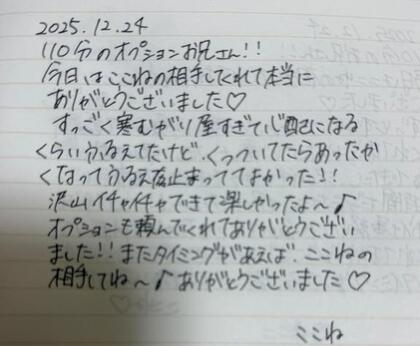 2025.12.24
110分のオプションお兄さん!!
今日はここねの相手してくれて本当に
ありがとうございました♡
すっごく寒むがり屋すぎて心配になる
くらいふるえてたけど、くっついてたらあったか
くなってふるえ止まっててよかった!!
沢山イチャイチャできて楽しかったよ〜♪
オプションも頼んでくれてありがとうござい
ました!!またタイミングがあえば、ここねの
相手してね〜♪ありがとうございました♡
ここね